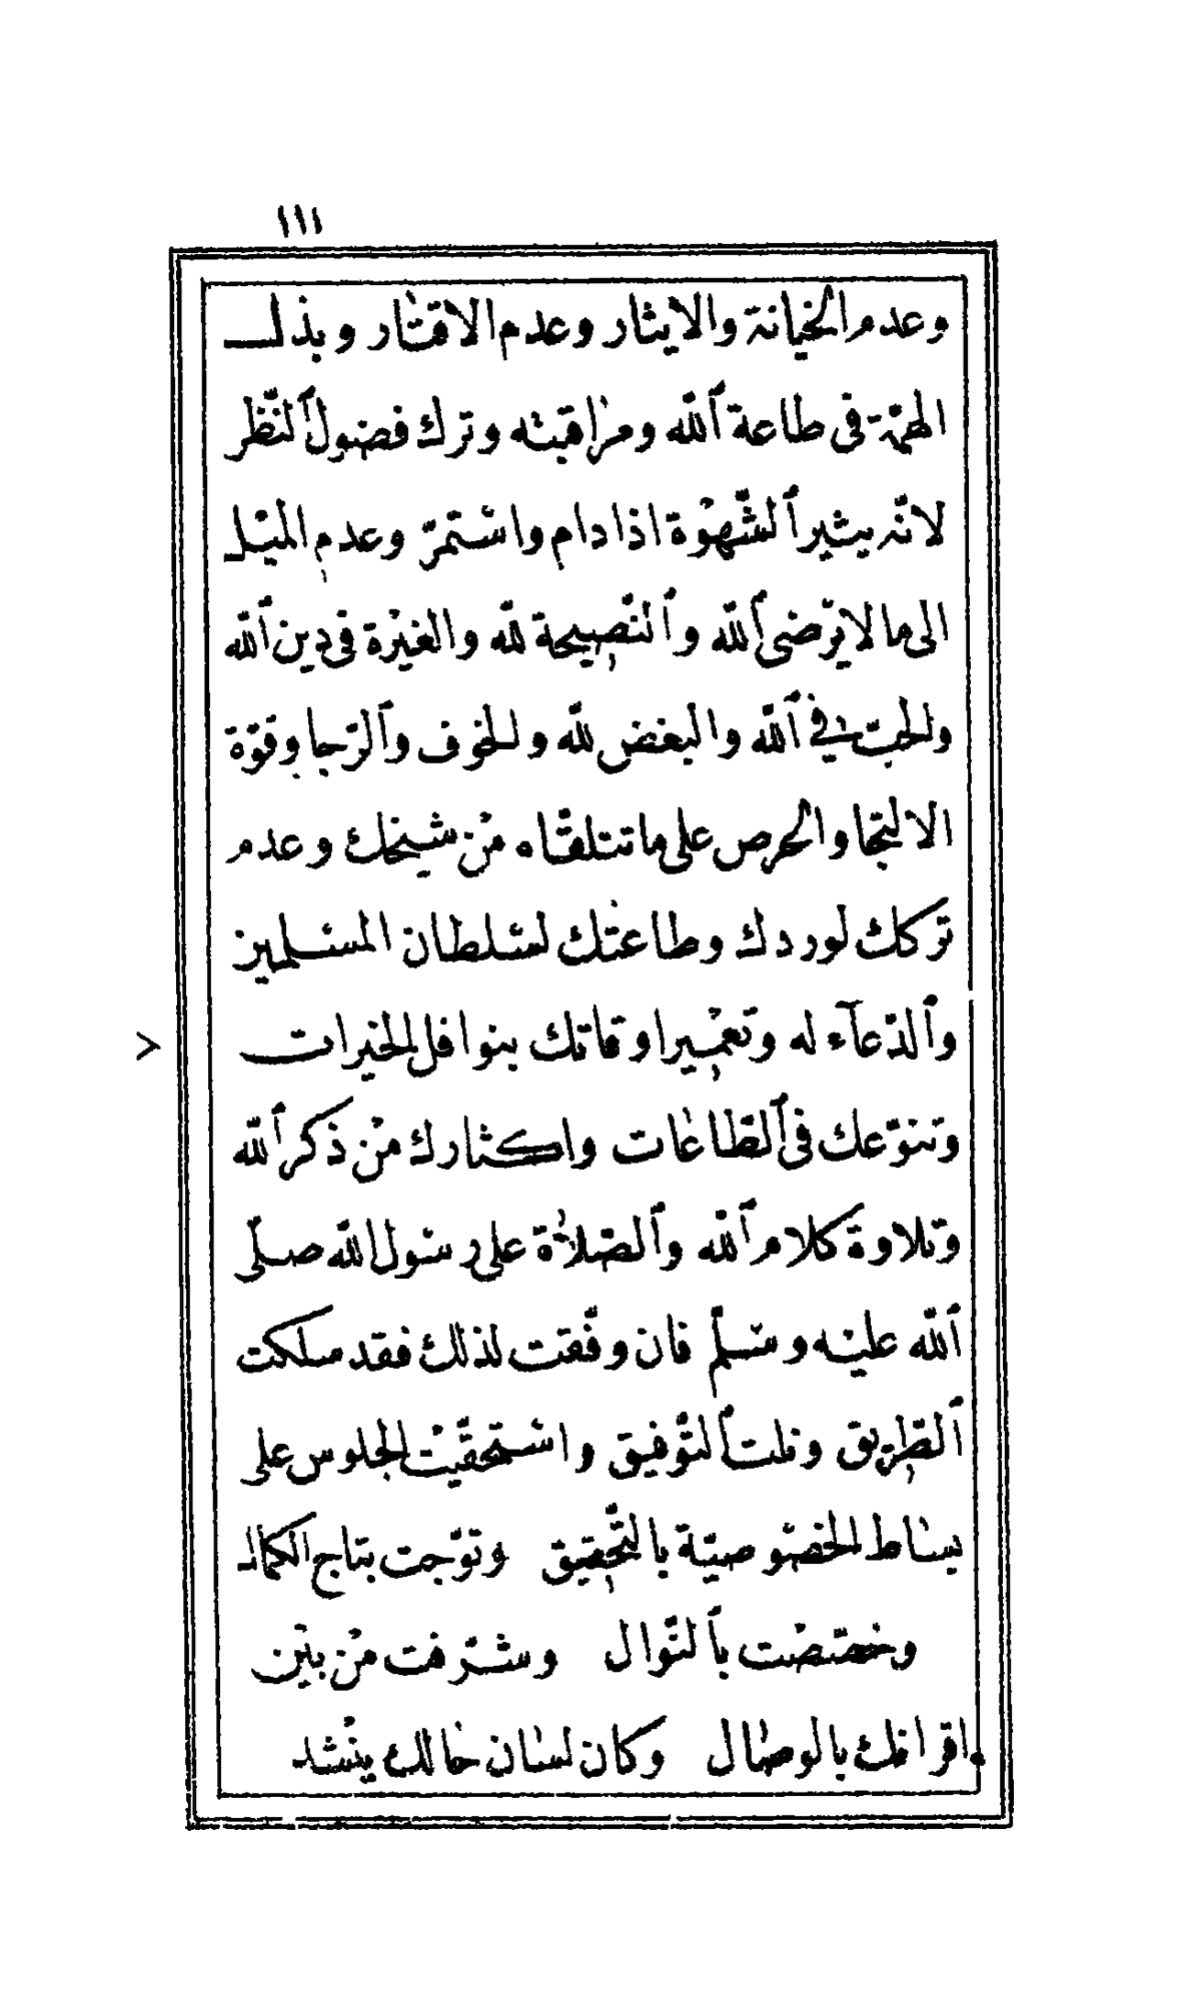 ١١١
وعدم الخيانة والايثار وعدم الاقتار وبذل
الهمّة فى طاعة ٱللّه ومراقبته وترك فضول ٱلنّظر
لانّه يثير ٱلشّهوة اذا دام واستمرّ وعدم الميل
الى ما لا يرضى ٱللّه وٱلنّصيحة للّه والغيرة فى دين ٱللّه
والحبّ في ٱللّه والبغض للّه والخوف وٱلرّجا وقوّة
الالتجا والحرص على ما تتلقّاه من شيخك وعدم
تركك لوردك وطاعتك لسلطان المسلمين
وٱلدّعآء له وتعمير اوقاتك بنوافل الخيرات
وتنوّعك فى ٱلطّاعات واكثارك من ذكر ٱللّه
وتلاوة كلام ٱللّه وٱلصّلاة على رسول اللّه صلّى
ٱللّه عليه وسلّم فان وفّقت لذلك فقد سلكت
ٱلطّريق ونلت ٱلتّوفيق واستحقّيت الجلوس على
بساط الخصوصيّة بالتّحقيق وتوّجت بتاج الكمال
وخصّصت بٱلنّوال وشرّفت من بين
اقرانك بالوصال وكان لسان حالك ينشد